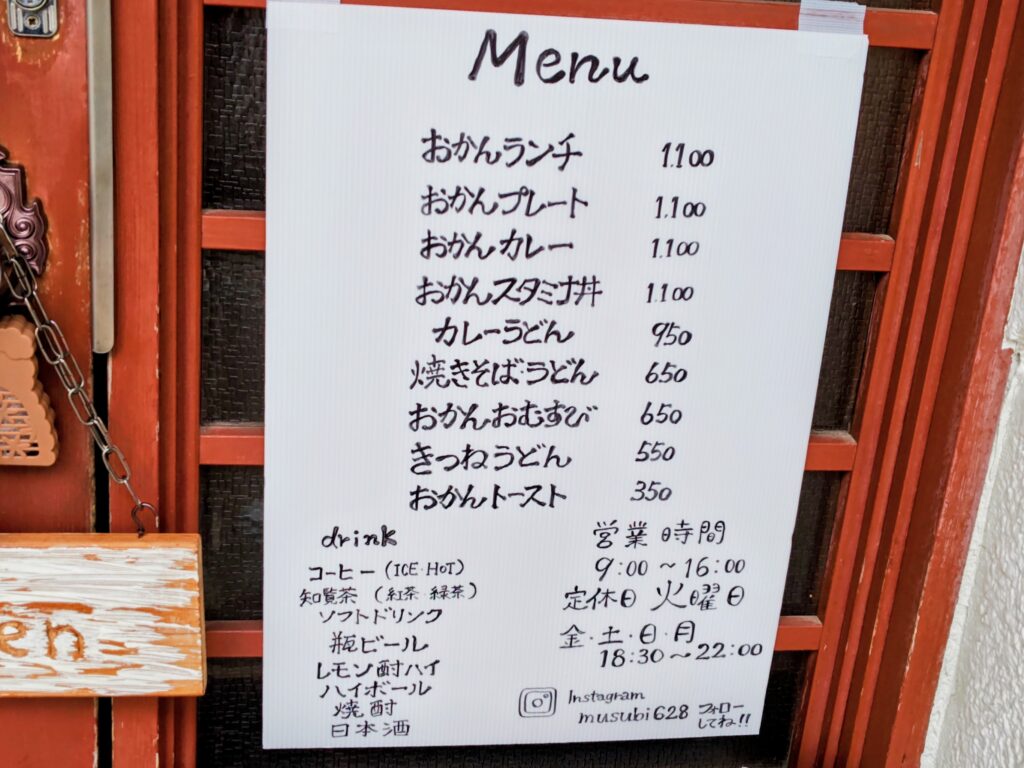 Menu
おかんランチ 1.100
おかんプレート 1.100
おかんカレー 1.100
おかんスタミナ丼 1.100
カレーうどん 950
焼きそば・うどん 650
おかんおむすび 650
きつねうどん 550
おかんトースト 350
drink
コーヒー (ICE・HOT)
知覧茶 (紅茶・緑茶)
ソフトドリンク
瓶ビール
レモン酎ハイ
ハイボール
焼酎
日本酒
営業時間
9:00〜16:00
定休日 火曜日
金・土・日・月
18:30〜22:00
Instagram
musubi628 フォロー
してね!!
en